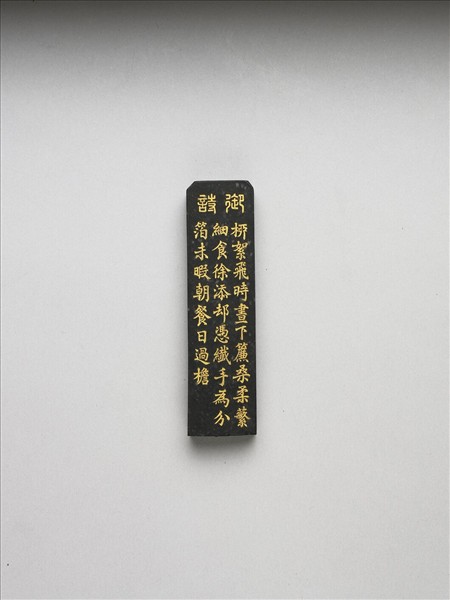 御詩
栁絮飛時晝下簾桑柔蠶
細食徐添却憑纖手為分
箔未暇朝餐日過檐